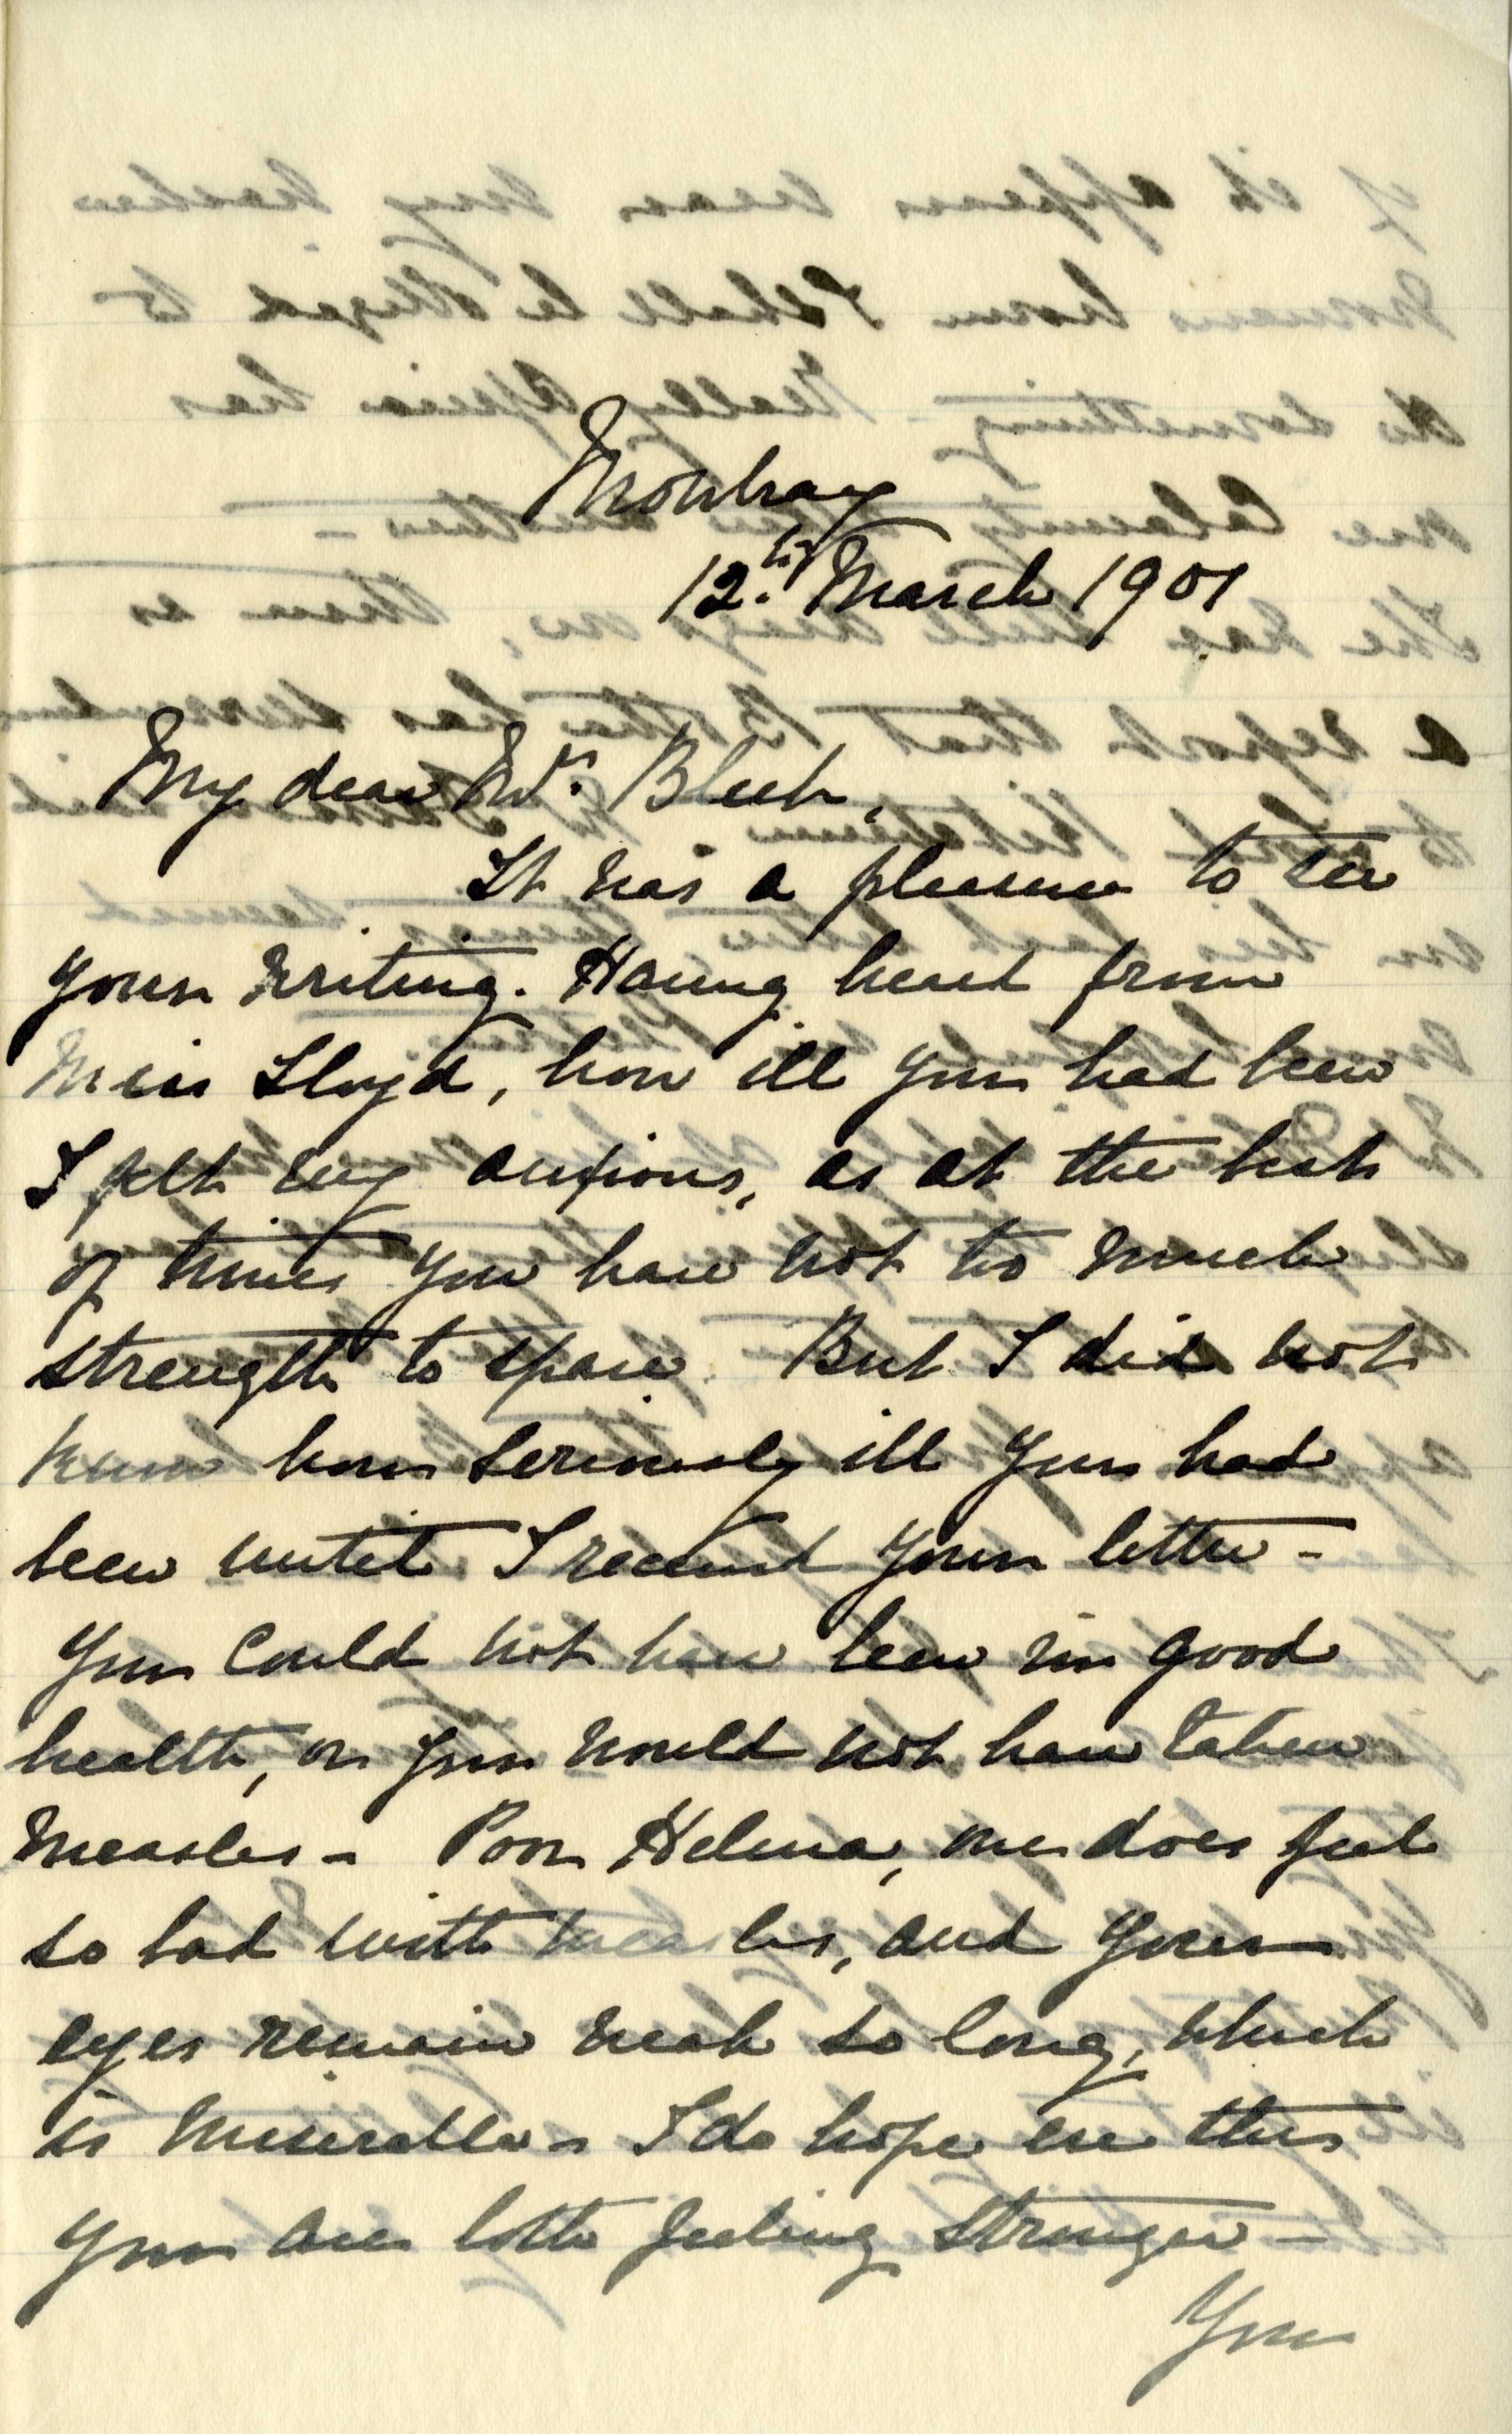 Mowbray
12th March 1901
My dear Mrs. Bleek,
It was a pleasure to see
your writing. Having heard from
Miss Lloyd, how ill you had been
I felt very anxious, as at the best
of times you have not too much
strength to spare. But I did not
know how seriously ill you had
been until I received your letter -
You could not have been in good
health, or you would not have taken
measles - Poor Helma, one does feel
so bad with measles, and your
eyes remain weak so long, which
is miserable - I do hope ere this
you are both feeling stronger -
You